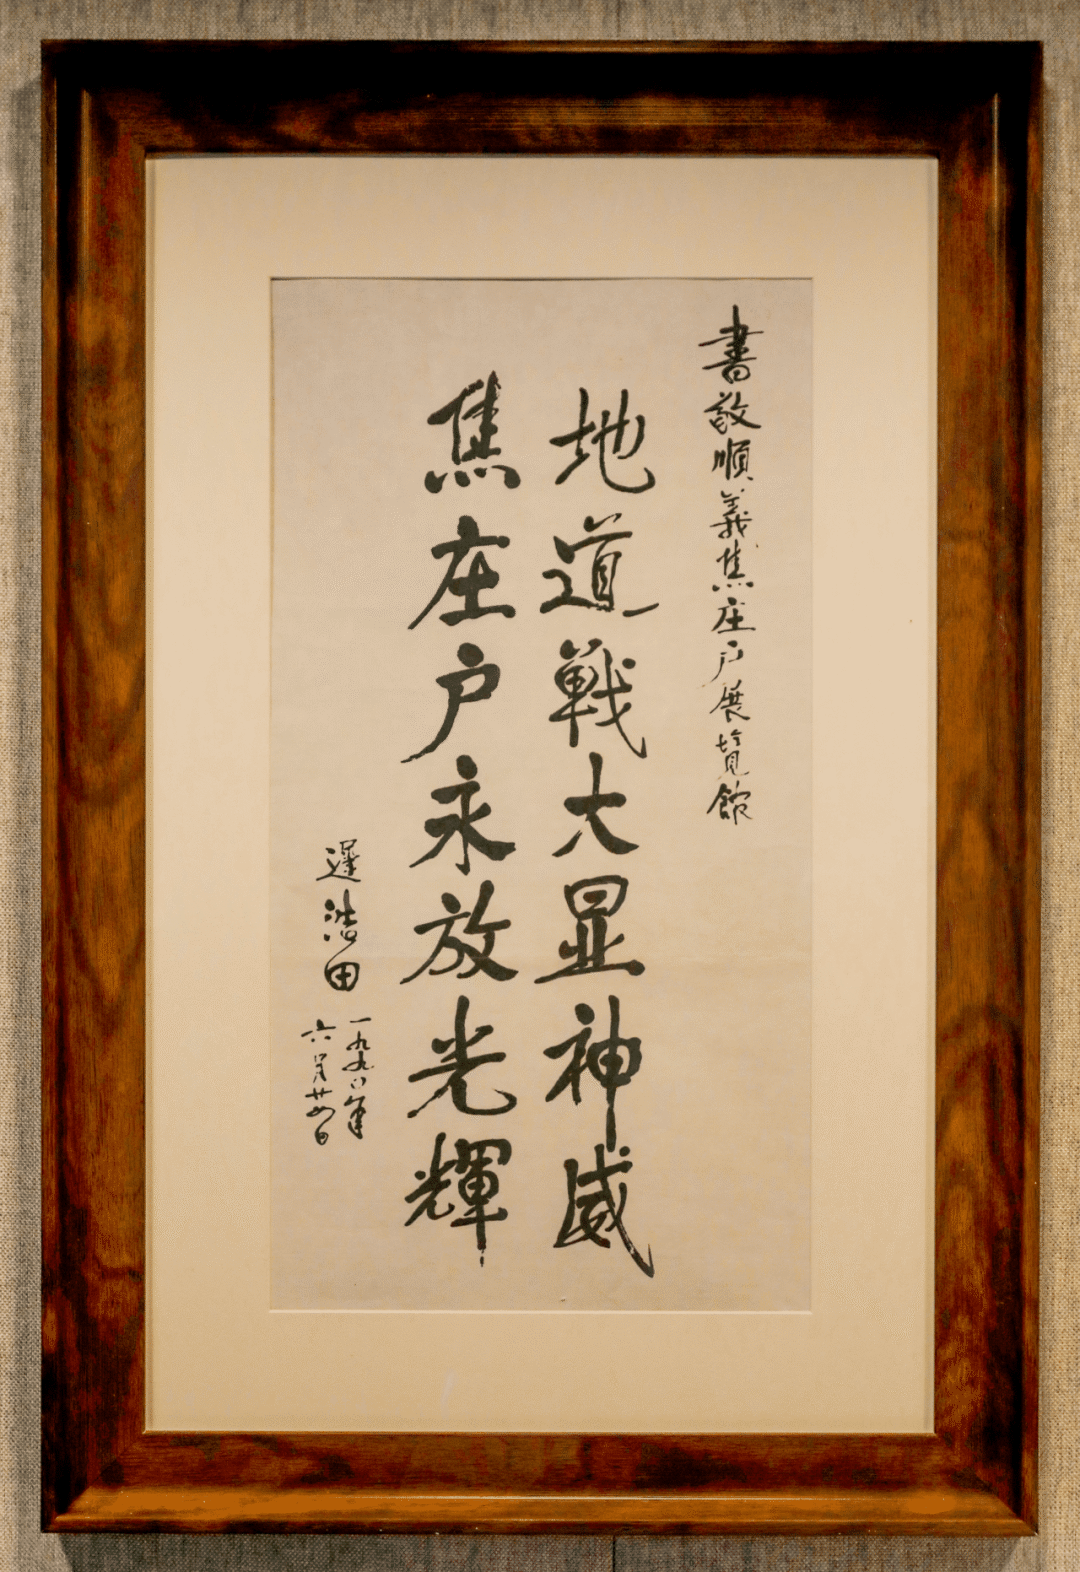 書敬順義焦庄户展覽館
地道戰大显神威
焦庄户永放光輝
遲浩田
一九九〇年
六月廿四日